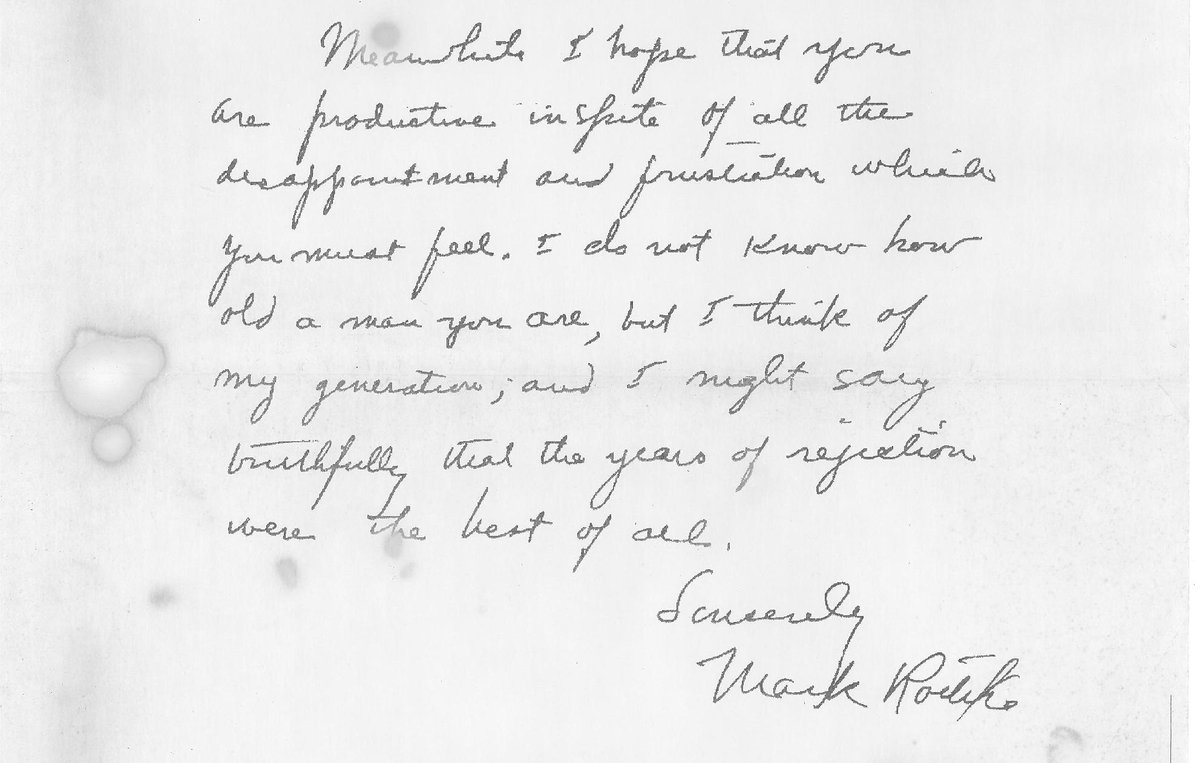 Meanwhile I hope that you
are productive inspite of all the
disappointment and frustration which
you must feel. I do not know how
old a man you are, but I think of
my generation; and I might say
truthfully that the years of rejection
were the best of all.
Sincerely
Mark Rothko